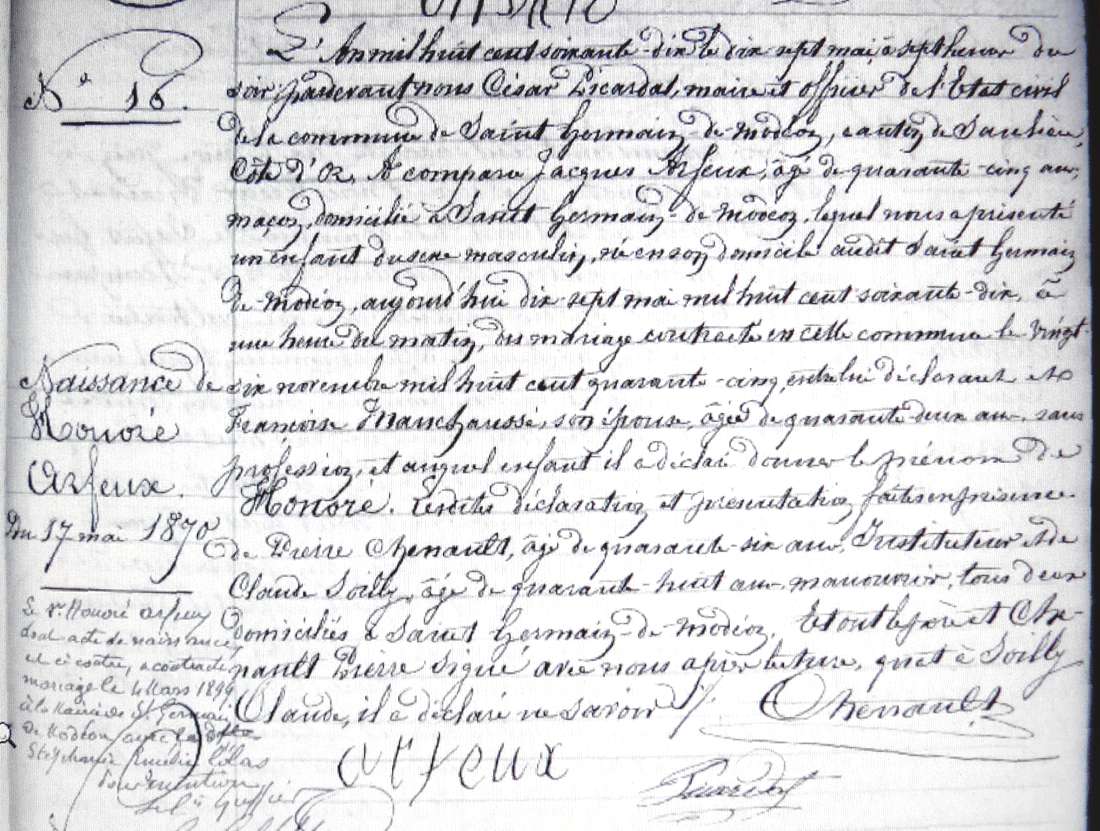 N° 16.
L'An mil huit cent soixante-dix le dix sept mai, à sept heures du
soir, pardevant nous César Picardat, maire et officier de l'Etat civil
de la commune de Saint Germain-de-Modéon, canton de Saulieu,
Côte d'Or, A comparu Jacques Arfeux, âgé de quarante-cinq ans,
maçon, domicilié à Saint Germain-de-Modéon, lequel nous a présenté
un enfant du sexe masculin, né en son domicile audit Saint Germain
de-Modéon, aujourd'hui dix sept mai mil huit cent soixante-dix, à
une heure du matin, du mariage contracté en cette commune le vingt-
six novembre mil huit cent quarante-cinq, entre lui déclarant et
Françoise Manchaussé, son épouse, âgée de quarante-deux ans, sans
profession, et auquel enfant il a déclaré donner le prénom de
Honoré. Lesdites déclaration et présentation faites en présence
de Pierre Chenault, âgé de quarante-six ans, Instituteur et de
Claude Soilly, âgé de quarante-huit ans, manouvrier, tous deux
domiciliés à Saint Germain-de-Modéon, Et ont le père et Che-
nault Pierre signé avec nous après lecture, quant à Soilly
Claude, il a déclaré ne savoir
Chenault
Arfeux
Naissance de
Honoré
Arfeux.
Du 17 mai 1870
Le sr. Honoré Arfeux
dont acte de naissance
est ci contre, a contracté
mariage le 4 Mars 1899
à la Mairie de St. Germain
de Modéon avec la
Stéphanie Lilas
Dont mention